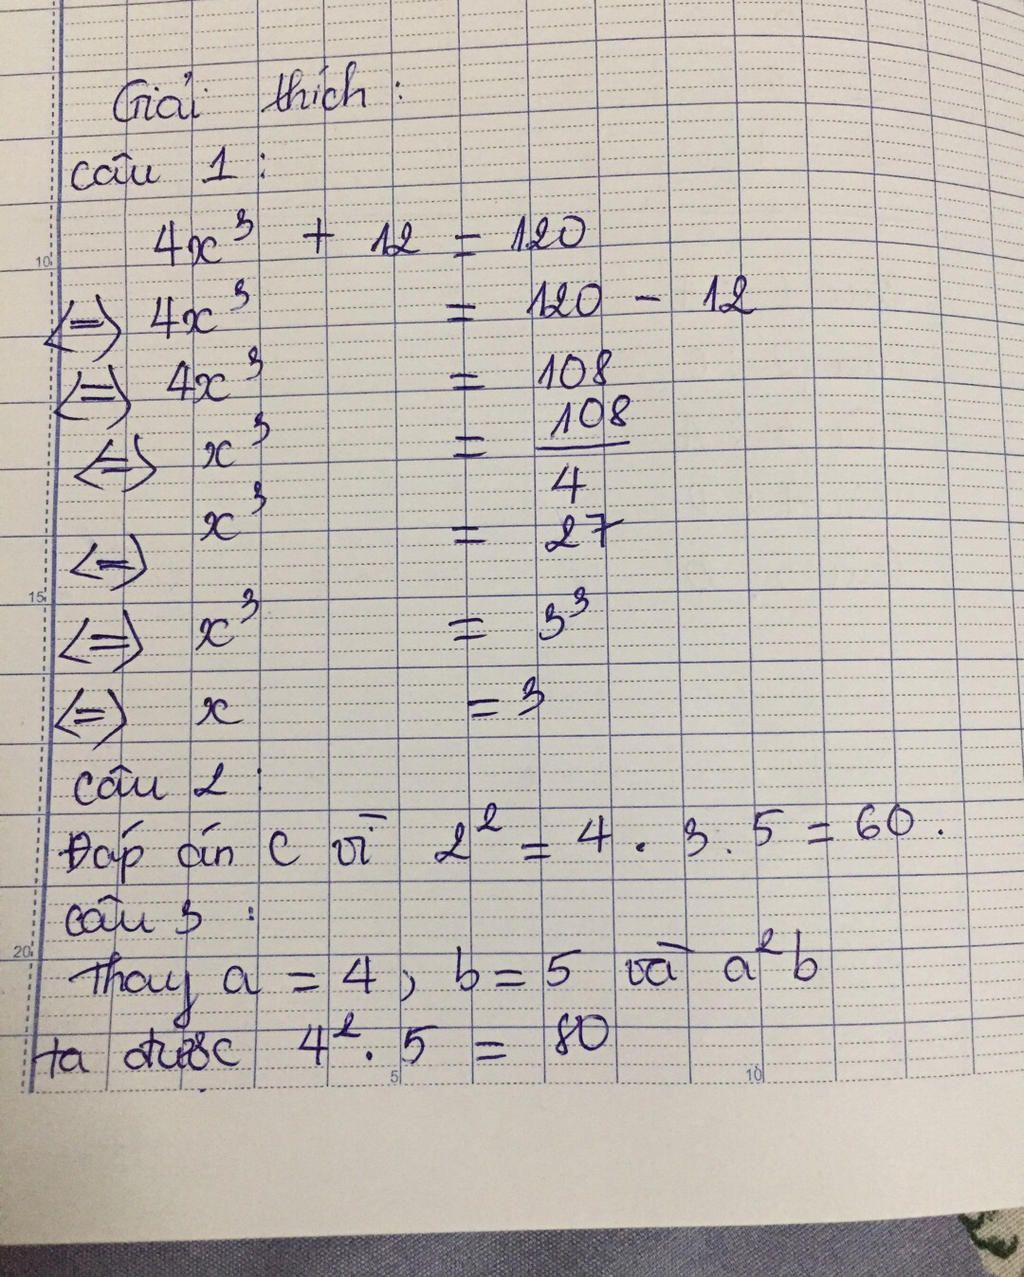 Giải thích :
câu 1 :
4x³ + 12 = 120
10
<=> 4x³ = 120 - 12
<=> 4x³ = 108
<=> x³ = 108/4
<=> x³ = 27
15
<=> x³ = 3³
<=> x = 3
câu 2 :
Đáp án C vì 2² = 4 . 3 . 5 = 60 .
câu 3 :
20
Thay a = 4 ; b = 5 và a²b
ta được 4² . 5 = 80
5 10